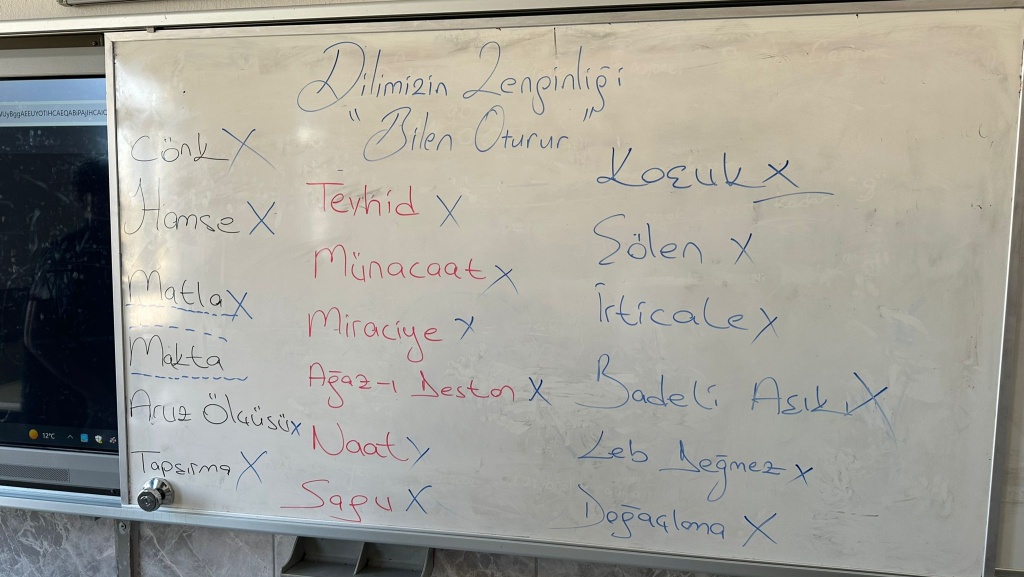 Dilimizin Zenginliği
"Bilen Oturur"
Cönk X
Hamse X
Matla X
Makta
Aruz Ölçüsü x
Tapşırma X
Tevhid X
Münacaat X
Miraciye X
Ağaz-ı Destan X
Naat X
Sagu X
Koçuk x
Şölen X
İrticale X
Badeli Aşık X
Leb Değmez x
Doğaçlama X
12°C